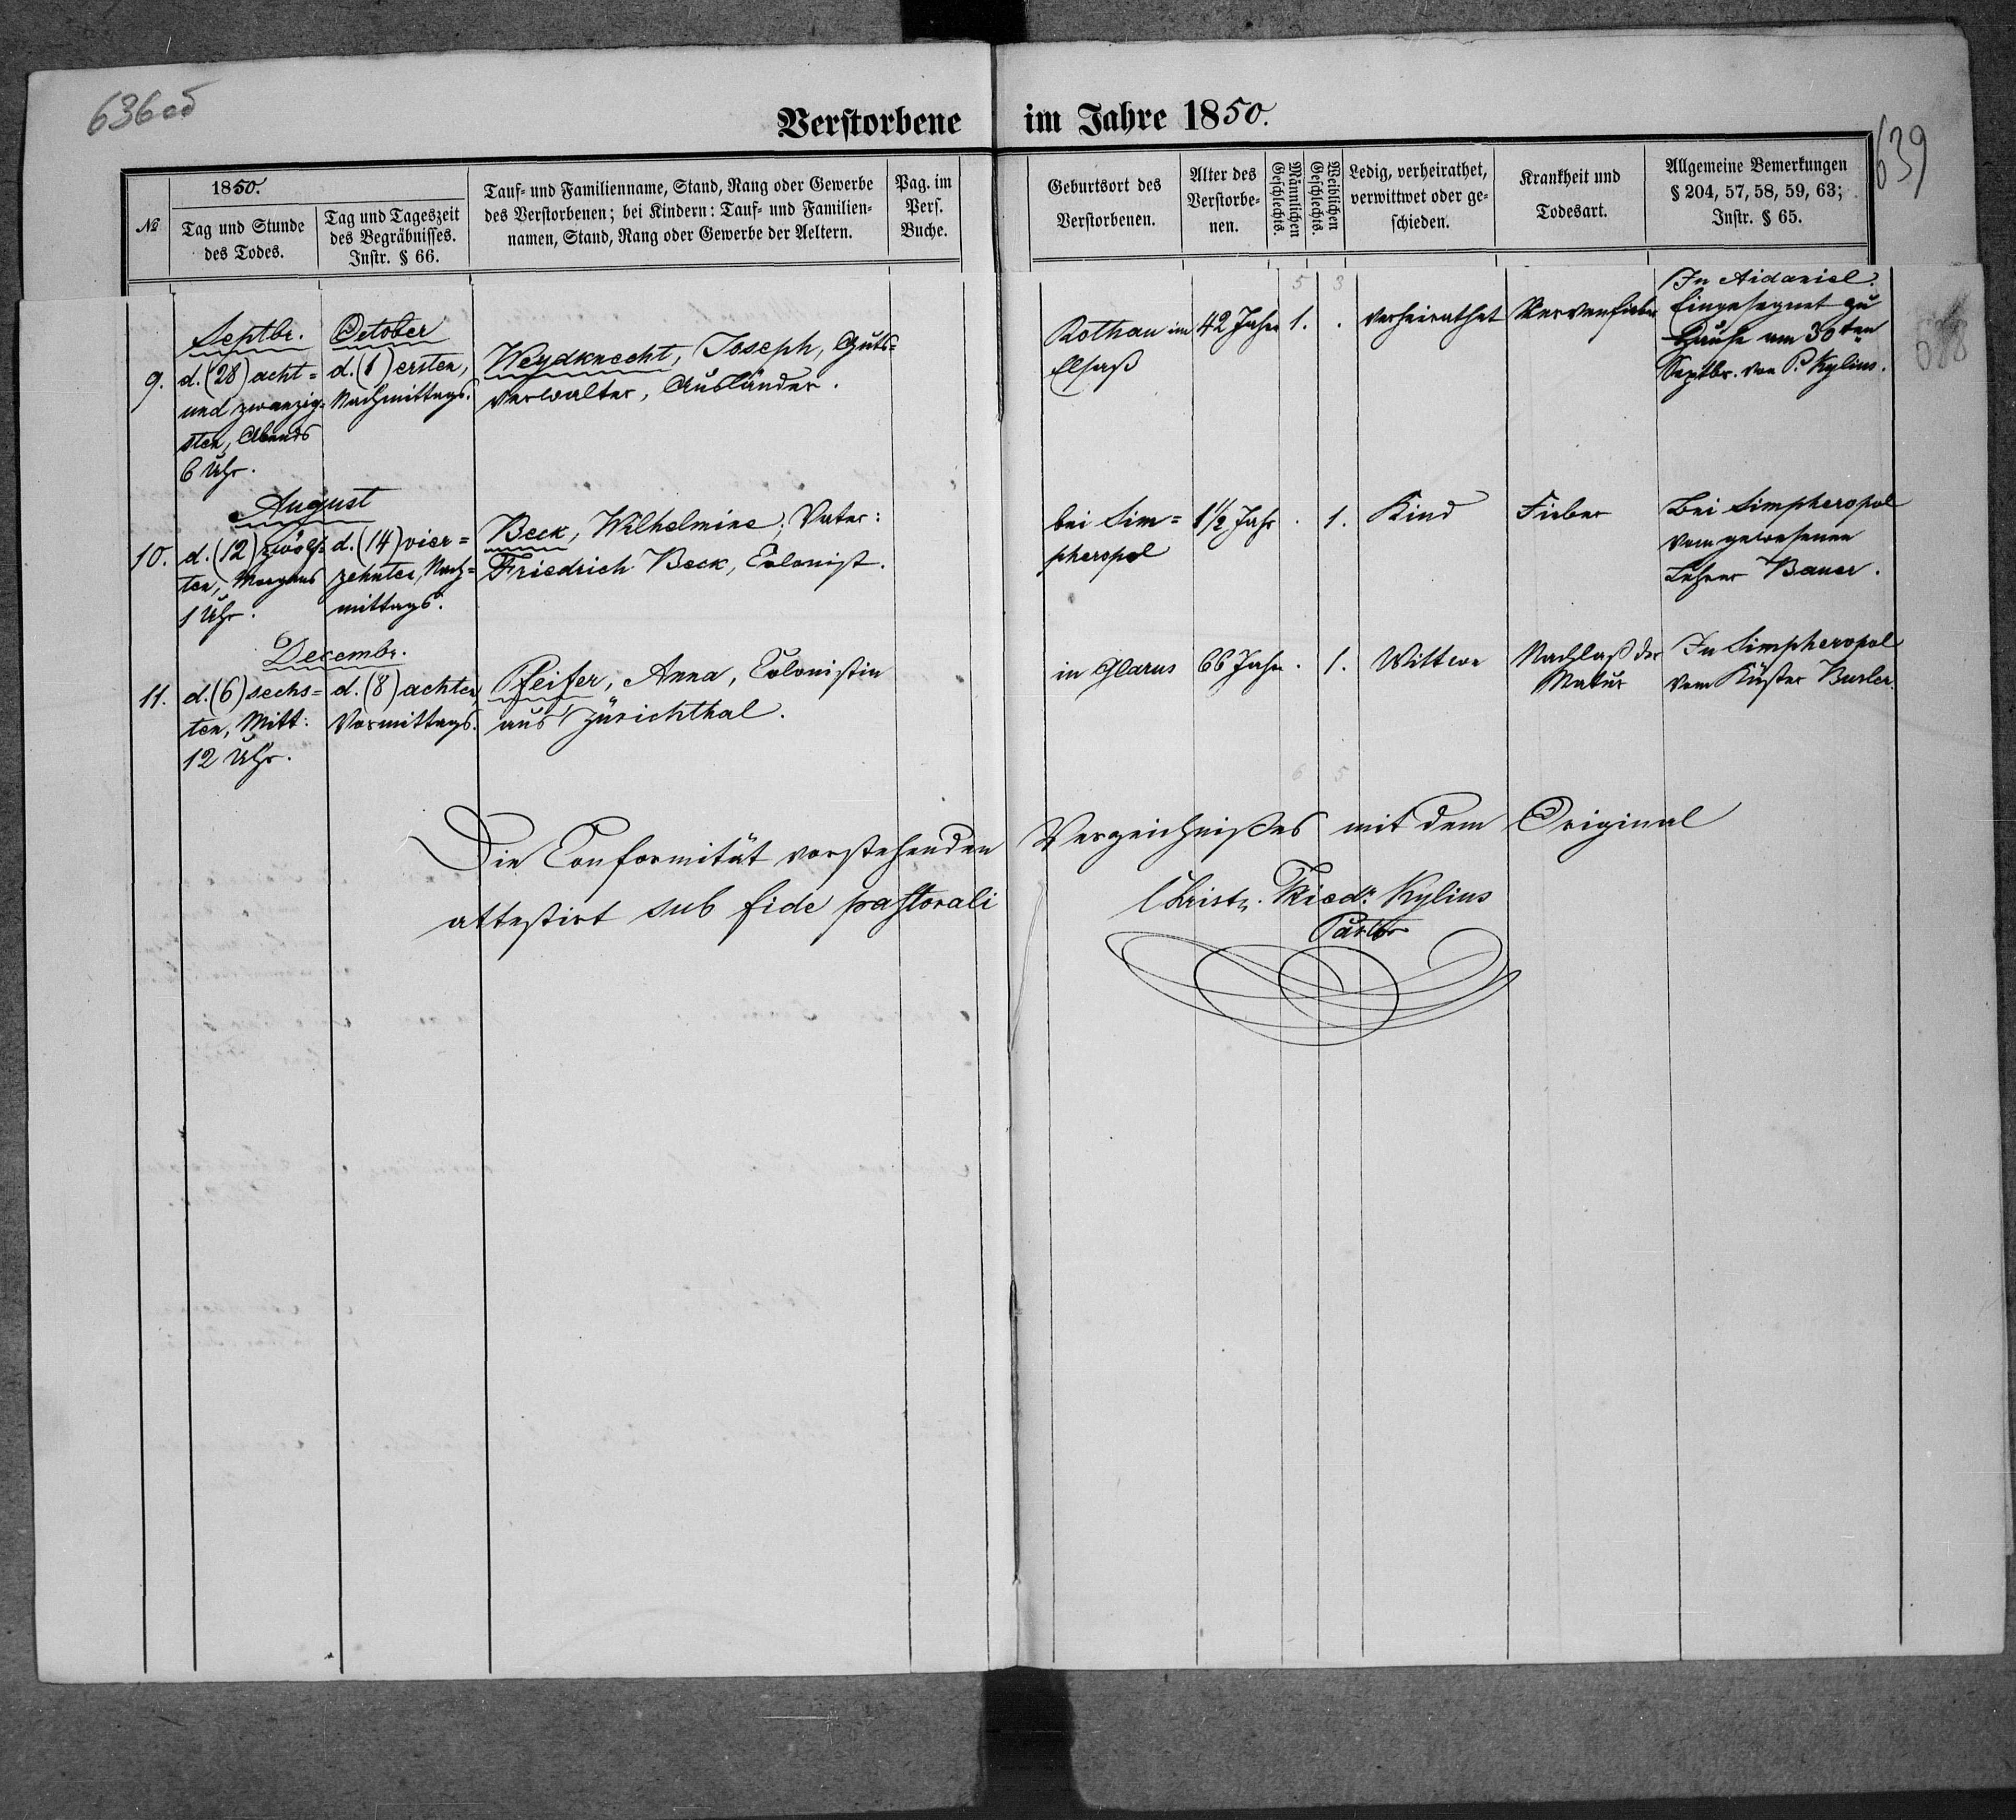 636 об
Verstorbene im Jahre 1850.
639
638
№
1850.
Tag und Stunde
des Todes.
Tag und Tageszeit
des Begräbnisses.
Instr. § 66.
Tauf- und Familienname, Stand, Rang oder Gewerbe
des Verstorbenen; bei Kindern: Tauf- und Familien-
namen, Stand, Rang oder Gewerbe der Aeltern.
Pag. im
Pers.
Buche.
Geburtsort des
Verstorbenen.
Alter des
Verstorbe-
nen.
Männlichen
Geschlechts.
Weiblichen
Geschlechts.
Ledig, verheirathet,
verwittwet oder ge-
schieden.
Krankheit und
Todesart.
Allgemeine Bemerkungen
§ 204, 57, 58, 59, 63;
Instr. § 65.
5 3
9.
Septbr.
d. (28) acht=
und zwanzig=
sten, Abends
6 Uhr.
October
d. (1) ersten,
Nachmittags.
Weydknecht, Joseph, Guts=
verwalter, Ausländer.
Rothau im
Elsaß
42 Jahre
1.
.
verheirathet
Nervenfieber
In Aidaniel.
Eingesegnet zu
Hause am 30ten
Septbr. von P. Kylius.
August
10.
d. (12) zwölf=
ten, Morgens
1 Uhr.
d. (14) vier=
zehnten, Nach=
mittags.
Beck, Wilhelmine; Vater:
Friedrich Beck, Colonist.
bei Sim=
pheropol
1 1/2 Jahr
.
1.
Kind
Fieber
Bei Simpheropol
vom gewesenen
Lehrer Bauer.
Decembr.
11.
d. (6) sechs=
ten, Mitt:
12 Uhr.
d. (8) achten,
Vormittags.
Pfeifer, Anna, Colonistin
aus Zürichthal.
in Glarus
66 Jahre
.
1.
Wittwe
Nachlaß der
Natur
In Simpheropol
vom Küster Burler.
6 5
Die Conformität vorstehenden Verzeichnißes mit dem Original
attestirt sub fide pastorali
Christn. Friedr. Kylius
Pastor